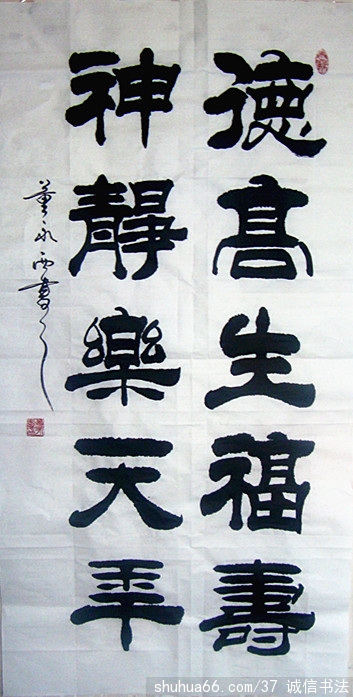 德高生福壽
神靜樂天年
董永西書
shuhua66.com/37 诚信书法